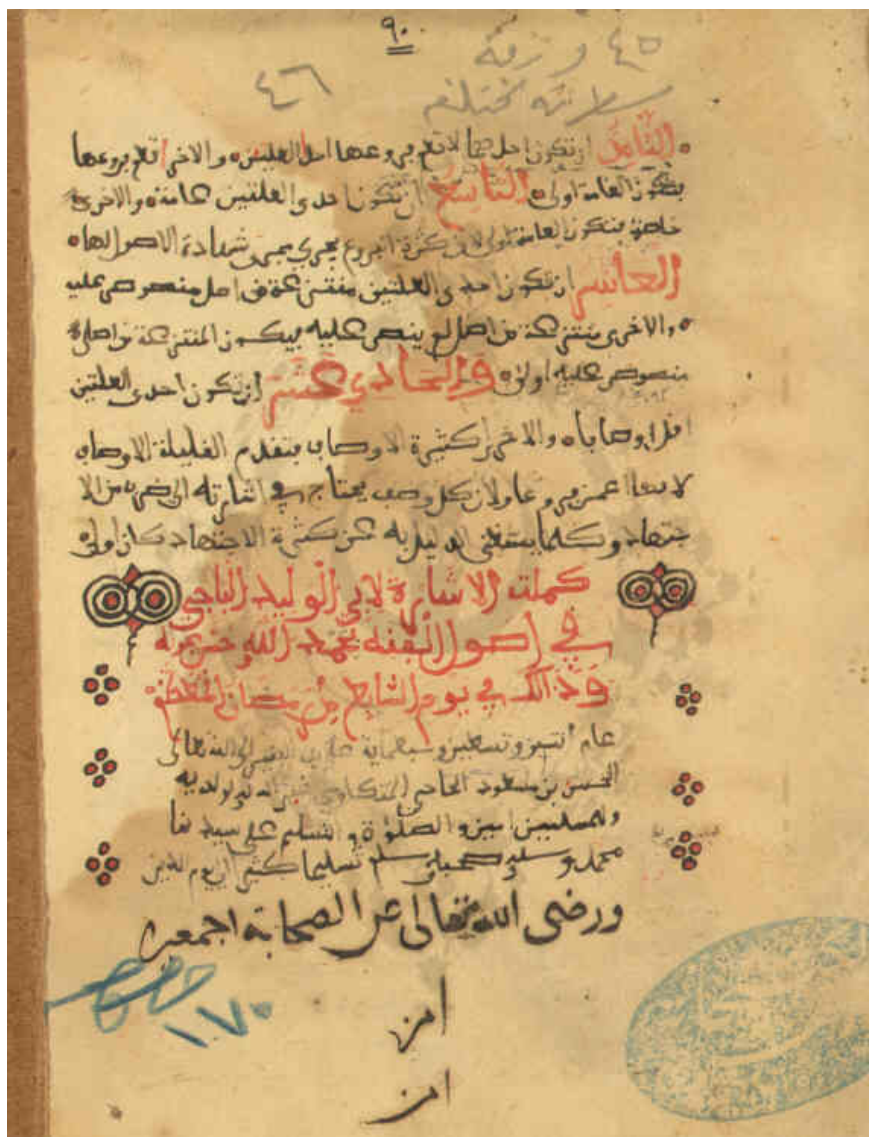 ٩٠
٤٥ ورقة
٤٦
الثامن ان تكون احداهما لا تعم فروعها والاخرى تعم فروعها
فتكون العامة اولى التاسع ان تكون احدى العلتين عامة والاخرى
خاصة فتكون العامة اولى لان كثرة الفروع يجري مجرى شهادة الاصول لها
العاشر ان تكون احدى العلتين منتزعة من اصل منصوص عليه
والاخرى منتزعة من اصل لم ينص عليه فيكون المنتزعة من اصل
منصوص عليه اولى والحادي عشر ان تكون احدى العلتين
اقل اوصافا والاخرى كثيرة الاوصاف فتقدم القليلة الاوصاف
لانها اعم فروعا ولان كل وصف يحتاج في اثباته الى ضرب من الا
جتهاد وكلما استغنى الدليل به عن كثرة الاجتهاد كان اولى
كملت الاشارة لابي الوليد الباجي
في اصول الفقه بحمد الله
وذالك في يوم التاسع من رمضان المعظم
عام اثنين وتسعين وسبعماية على يد الفقير الى الله تعالى
الحسن بن مسعود غفر الله له ولوالديه
وللمسلمين امين والصلوة والتسليم على سيدنا
محمد وسلم تسليما كثيرا الى يوم الدين
ورضى الله تعالى عن الصحابة اجمعين
١٧٠
امن
امن